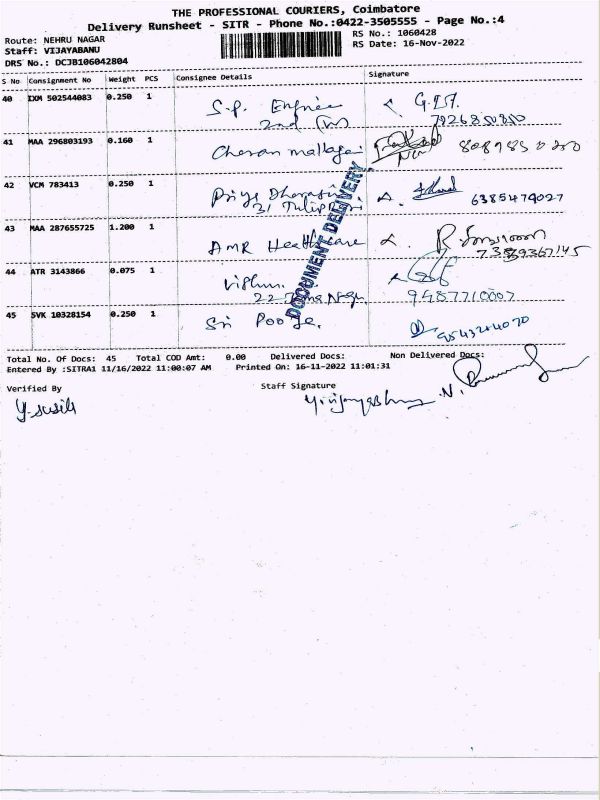 THE PROFESSIONAL COURIERS, Coimbatore
Delivery Runsheet - SITR - Phone No.:0422-3505555 - Page No.:4
Route: NEHRU NAGAR
Staff: VIJAYABANU
DRS No.: DCJB106042804
RS No.: 1060428
RS Date: 16-Nov-2022
S No Consignment No Weight PCS Consignee Details Signature
40 IXM 502544083 0.250 1 S.P.
2nd
41 MAA 296803193 0.160 1 Cheran
42 VCM 783413 0.250 1 Priya 6385474027
31 Tulip
43 MAA 287655725 1.200 1 AMR Healthcare
44 ATR 3143866 0.075 1 Vishnu 9487710007
22
45 SVK 10328154 0.250 1 Sri Pooja. 9543244070
DOCUMENT DELIVERY
Total No. Of Docs: 45 Total COD Amt: 0.00 Delivered Docs: Non Delivered Docs:
Entered By :SITRA1 11/16/2022 11:00:07 AM Printed On: 16-11-2022 11:01:31
Verified By Staff Signature